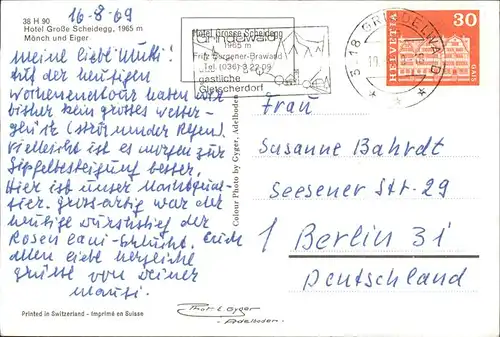 16-8-69
38 H 90
Hotel Große Scheidegg, 1965 m
Mönch und Eiger
Hotel Grosse Scheidegg
Grindelwald
1965 m
Fritz Burgener-Brawand
Tel. (036) 3 22 09
gastliche
Gletscherdorf
3818 GRINDELWALD
HELVETIA
30
meine liebe Mutti!
Auf der heutigen
Wochenendtour haben wir
bisher kein großes Wetter-
glück (Sturm und Regen).
Vielleicht ist es morgen zur
Gipfelbesteigung besser.
Hier ist unser Nachtquar-
tier. Großartig war der
heutige Durchstieg der
Rosenlaui-Schlucht. Euch
allen liebe herzliche
Grüße von Deiner
Mausi.
Colour Photo by Gyger, Adelboden
Frau
Susanne Bahrdt
Seesener Str. 29
1 Berlin 31
Deutschland
Printed in Switzerland - Imprimé en Suisse
Phot. E. Gyger
Adelboden